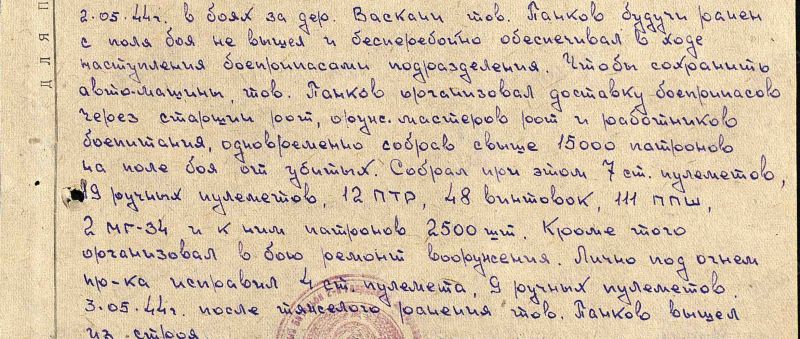 2.05.44г. в боях за дер. Васкани тов. Панков будучи ранен
с поля боя не вышел и бесперебойно обеспечивал в ходе
наступления боеприпасами подразделения. Чтобы сохранить
авто-машины, тов. Панков организовал доставку боеприпасов
через старшин рот, оруж. мастеров рот и работников
боепитания, одновременно собрав свыше 15000 патронов
на поле боя от убитых. Собрал при этом 7 ст. пулеметов,
19 ручных пулеметов, 12 ПТР, 48 винтовок, 111 ППШ,
2 МГ-34 и к ним патронов 2500 шт. Кроме того
организовал в бою ремонт вооружения. Лично под огнем
пр-ка исправил 4 ст. пулемета, 9 ручных пулеметов.
3.05.44г. после тяжелого ранения тов. Панков вышел
из строя